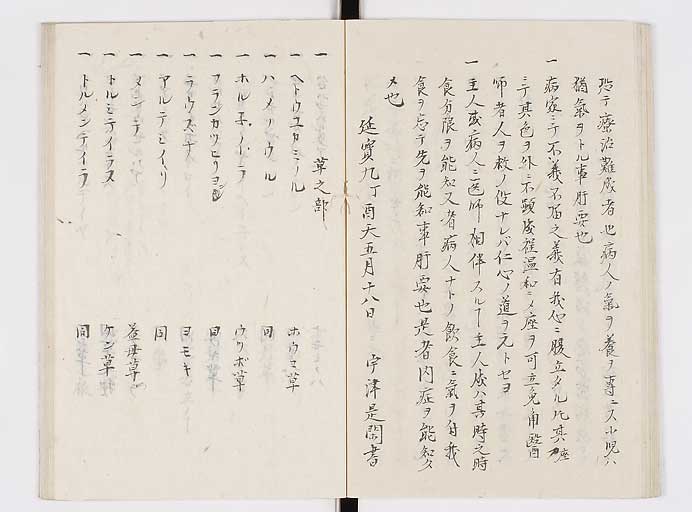 テ療治難成者也病人ノ氣ヲ養ヲ專ニス小児ハ
猶氣ヲトル事肝要也
一 病家ニテ不義不届之義有我心ニ腹立タル凡其座
ニテ其色ヲ外ニ不顕成程温和ニメ座ヲ可立免角醫
師者人ヲ救ノ役ナレバ仁心ノ道ヲ元トセヨ
一 主人或病人ニ医師相伴スルヿ主人成ハ其時之時
食分限ヲ能知又者病人ナトノ飲食ニ氣ヲ付我
食ヲ忘テ先ヲ能知事肝要也是者内症ヲ能知ク
メ也
延寶九丁酉天五月十八日 宇津是閑書
一 草之部
一 ヘトウユカミノール ホウコ草
一 ハメリウル 同
一 ホルネイラ ウツボ草
一 フランカツヒリヨム 同
一 ラウズナ ヨモキ
一 アルテミイハリ 同
一 メンテ 益母草
一 トルミテイラス ケン草
一 トルメンテイラ 同